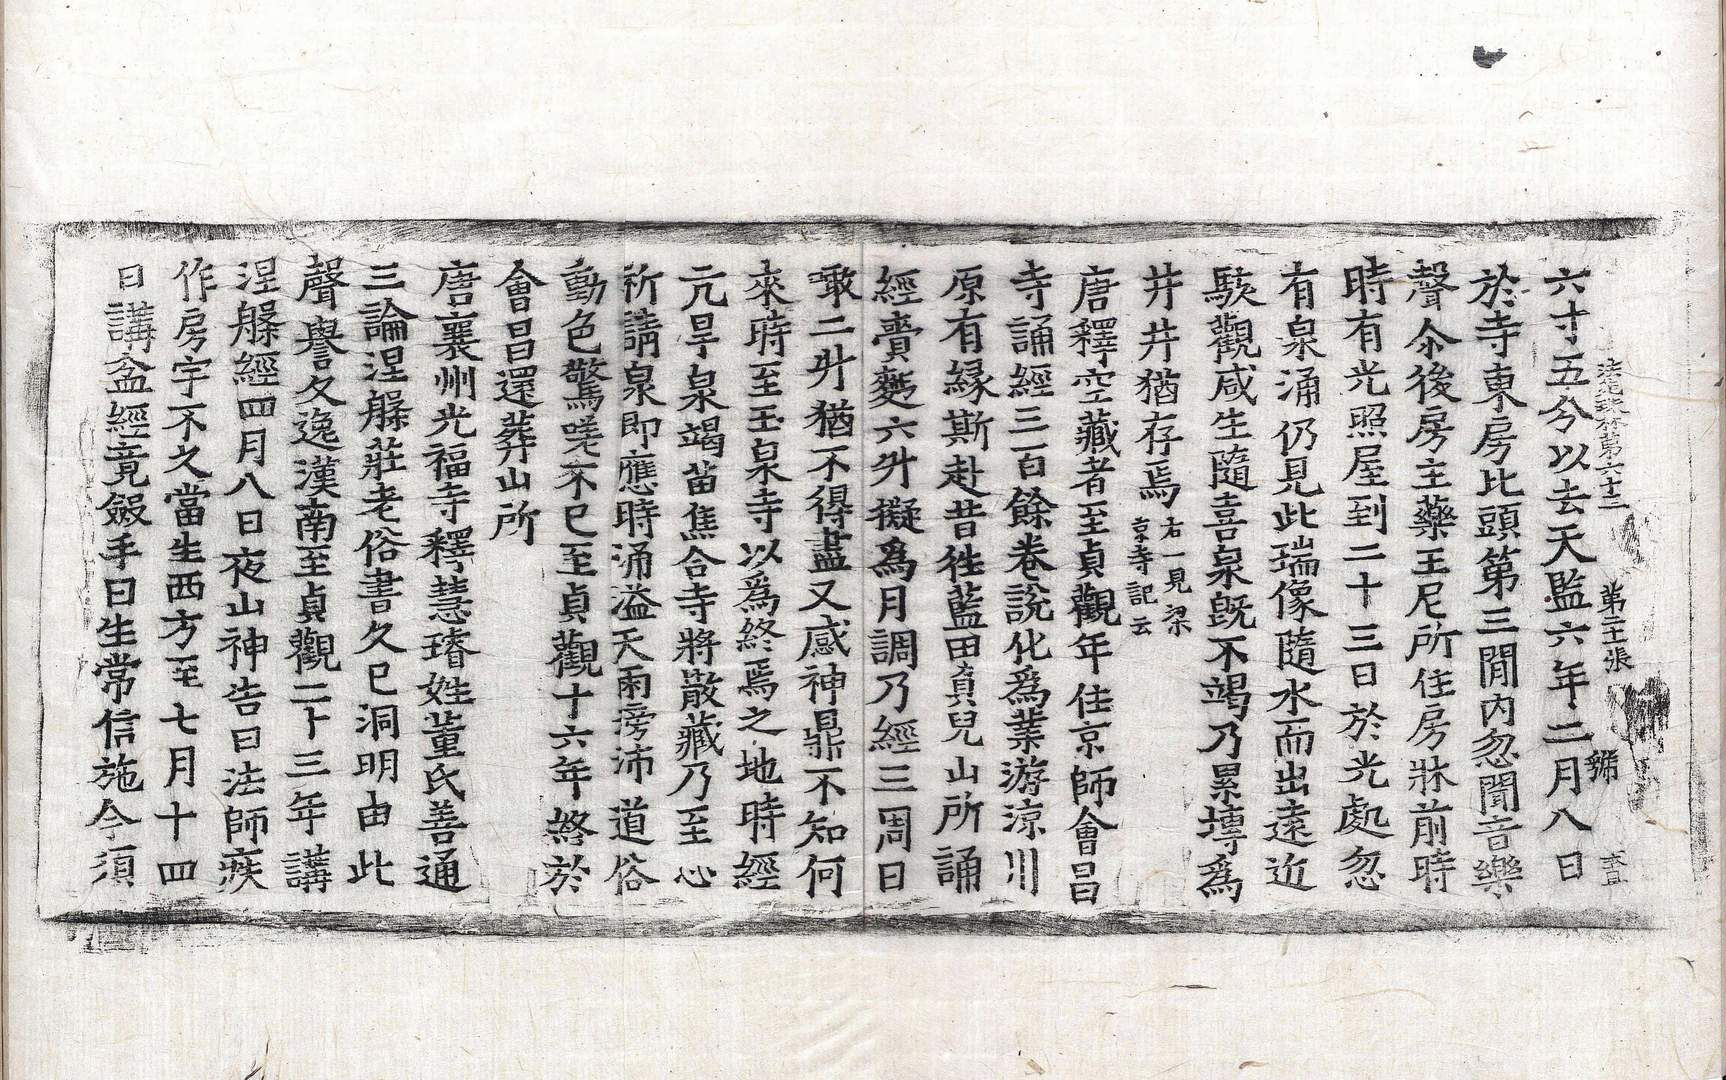 法苑珠林第六十三 第二十張 號
六寸五分以去天監六年二月八日
於寺東房比頭第三間內忽聞音樂
聲尒後房主藥王尼所住房牀前時
時有光照屋到二十三日於光處忽
有泉涌仍見此瑞像隨水而出遠近
駭觀咸生隨喜泉旣不竭乃累塼爲
井井猶存焉 右一見梁京寺記云
唐釋空藏者至貞觀年住京師會昌
寺誦經三百餘卷說化爲業游涼川
原有緣斯赴昔往藍田負兒山所誦
經賫麪六升擬爲月調乃經三周日
噉二升猶不得盡又感神鼎不知何
來時至玉泉寺以爲終焉之地時經
亢旱泉竭苗焦合寺將散藏乃至心
祈請泉即應時涌溢天雨滂沛道俗
動色驚嗟不已至貞觀十六年終於
會昌還葬山所
唐襄州光福寺釋慧璿姓董氏善通
三論涅槃莊老俗書久已洞明由此
聲譽久逸漢南至貞觀二十三年講
涅槃經四月八日夜山神告曰法師疾
作房宇不久當生西方至七月十四
日講盆經竟斂手曰生常信施今須